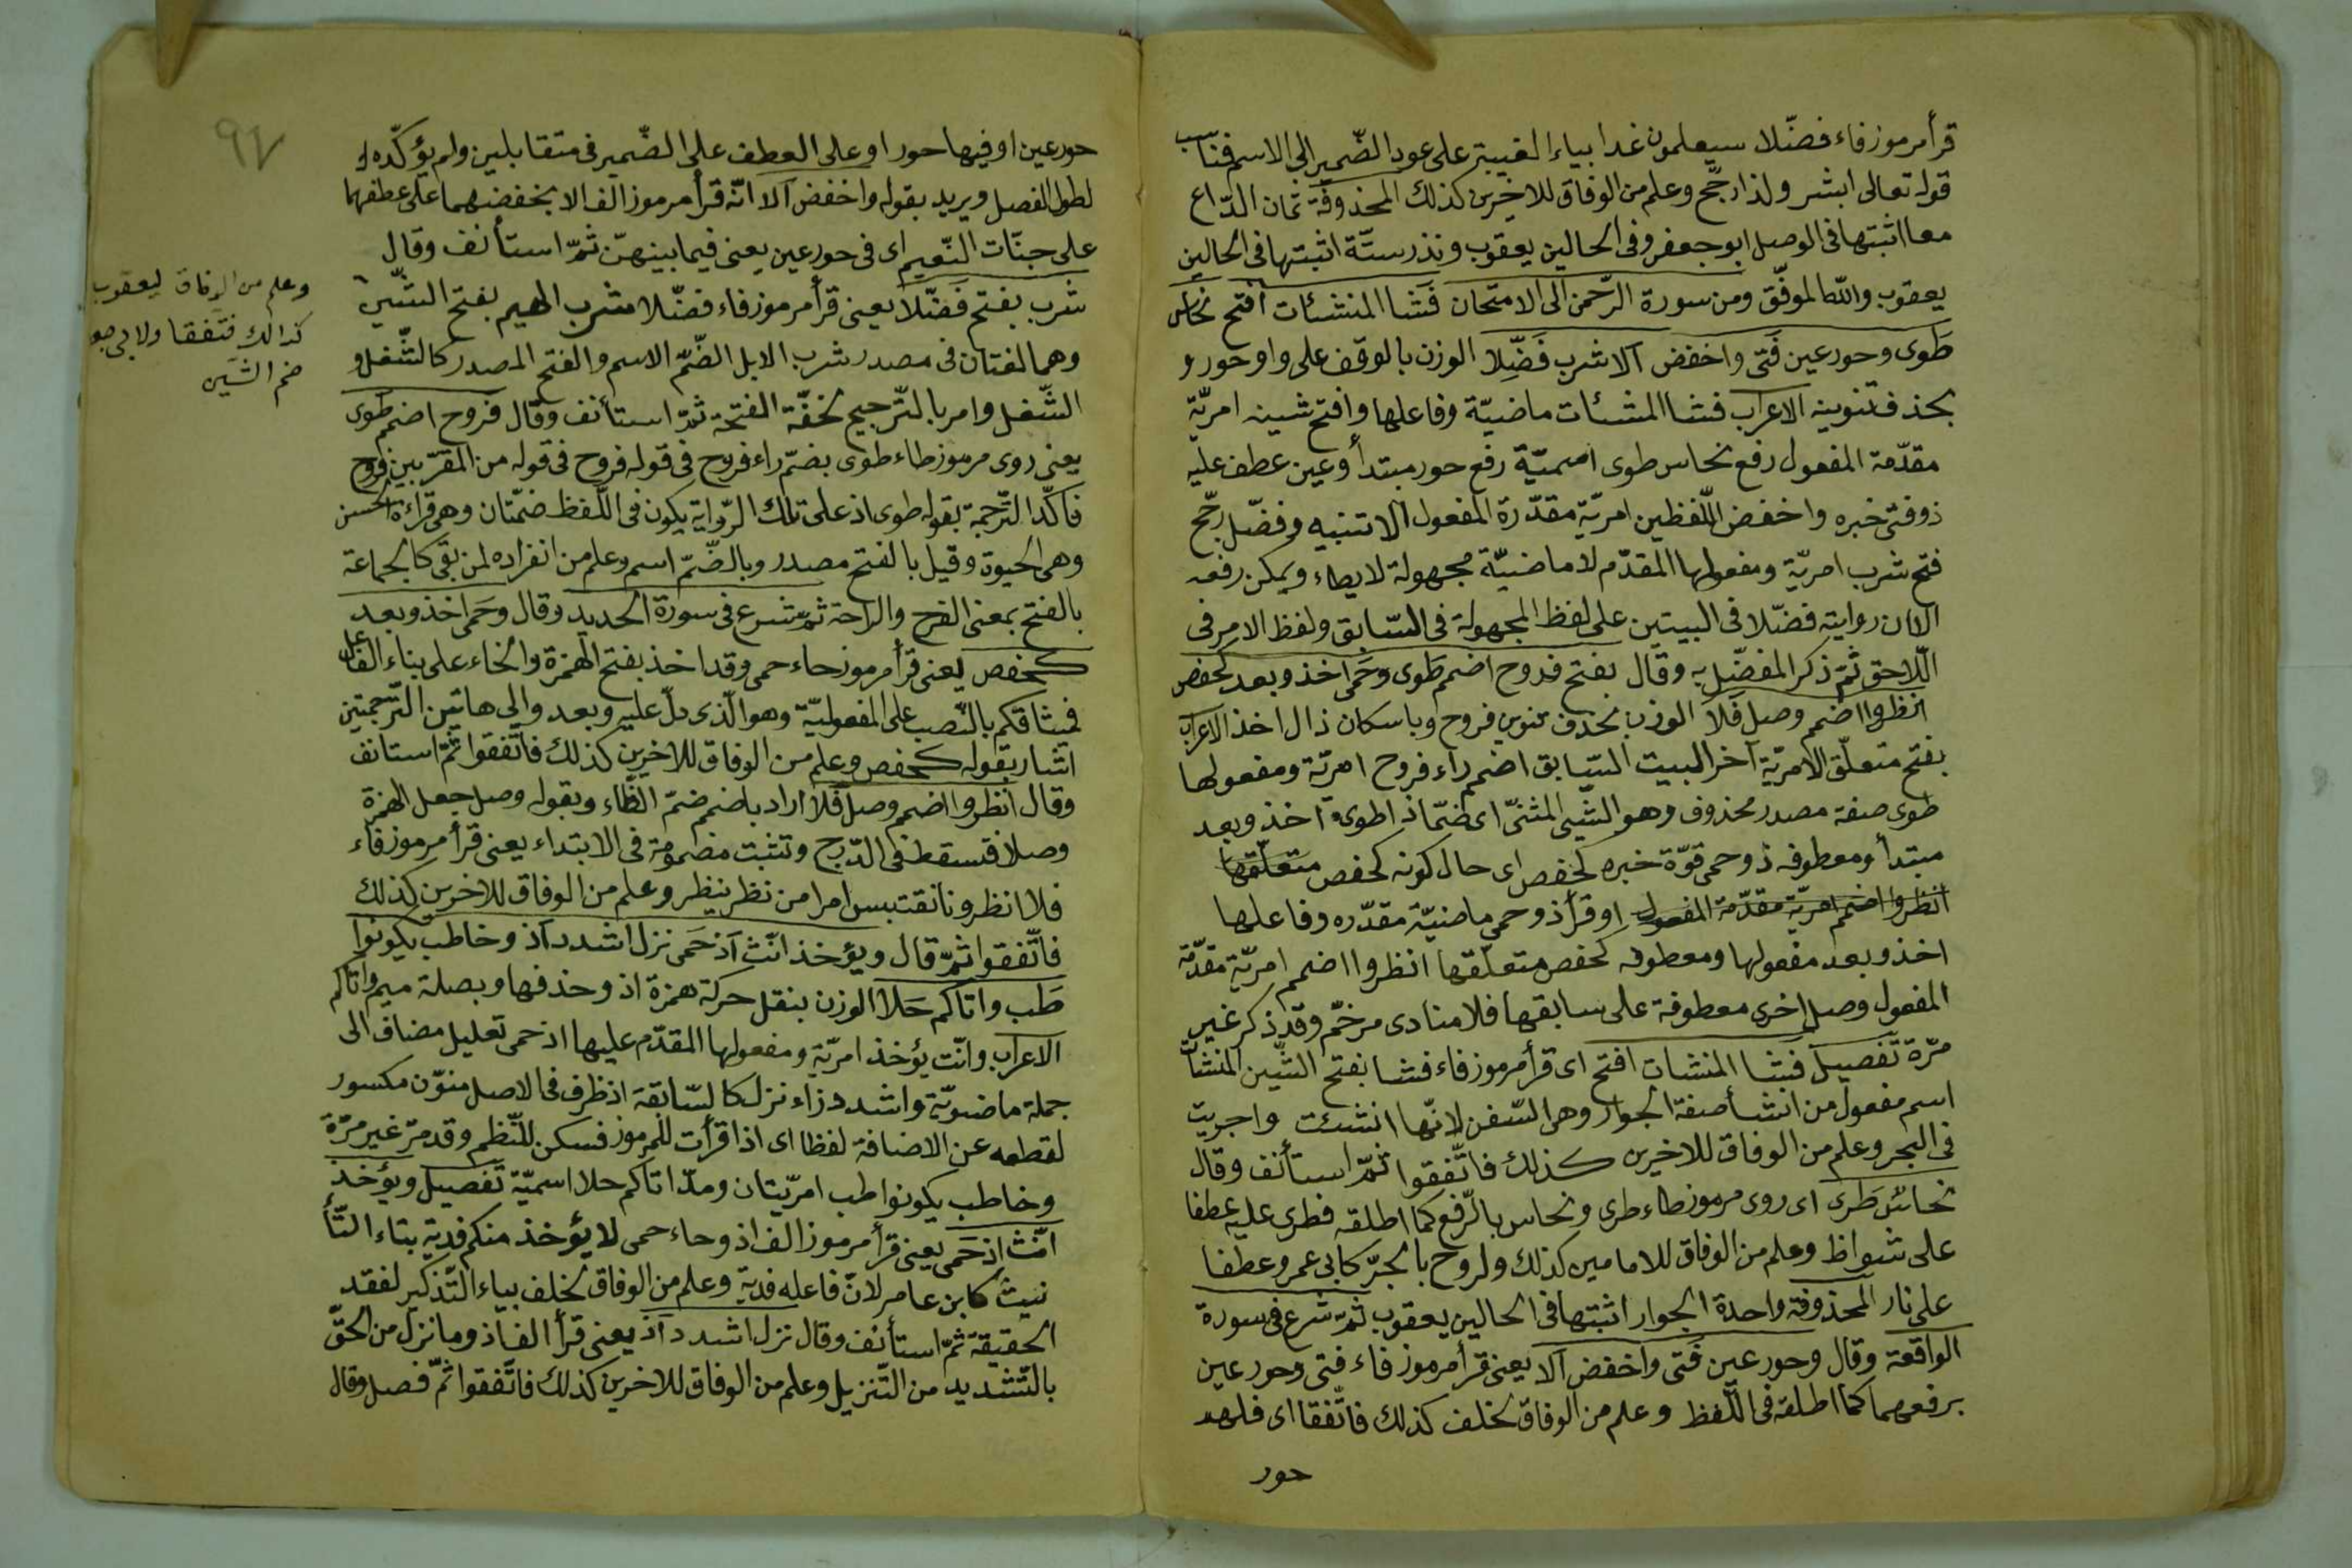 قرأ مرموز فاء فضّلا سيعلمون غدا بياء الغيبة على عود الضّمير الى الاسم فناسب
قوله تعالى ابشر ولذا رجّح وعلم من الوفاق للاخرين كذلك المحذوفة ثمان الدّاع
معا اثبتها فى الوصل ابو جعفر وفى الحالين يعقوب ونذر ستّة اثبتها فى الحالين
يعقوب والله الموفّق ومن سورة الرّحمن الى الامتحان فَشا المنشئات افتح نحاس
طَوى وحور عين فَتى واخفض آلا شرب فَضِّلا الوزن بالوقف على واو حور و
بحذف تنوينه الاعراب فشا المشئات ماضيّة وفاعلها وافتح شينه امريّة
مقدّمة المفعول رفع نحاس طوى اسميّة رفع حور مبتدأ وعين عطف عليه
ذو فتى خبره واخفض اللّفظين امريّة مقدّرة المفعول الا تنبيه وفضّل رجّح
فتح شرب امريّة ومفعولها المقدّم لا ماضيّة مجهولة لايطاء ويمكن رفعه
الان رواية فضّلا فى البيتين على لفظ المجهولة فى السّابق ولفظ الامر فى
اللّاحق ثمّ ذكر المفضّل به وقال بفتح فروح اضمم طَوى وحَمى اخذ وبعد كحفص
انظروا اضمم وصل فَلا الوزن بحذف تنوين فروح وباسكان ذال اخذ الاعراب
بفتح متعلّق الامريّة آخر البيت السّابق اضمم راء فروح امريّة ومفعولها
طوى صفة مصدر محذوف وهو الشّيئ المثنّى اى ضمّا ذا طوى آخذ وبعد
مبتدأ ومعطوفه ذو حمى قوّة خبره كحفص اى حال كونه كحفص متعلّقها
انظروا اضمم امريّة مقدّمة المفعول او قرأ ذو حمى ماضيّة مقدّره وفاعلها
اخذ وبعد مفعولها ومعطوفه كحفص متعلّقها انظروا اضمم امريّة مقدّمة
المفعول وصل اخرى معطوفة على سابقها فلا منادى مرخّم وقد ذكر غير
مرّة تفصيل فشا المنشات افتح اى قرأ مرموز فاء فشا بفتح الشّين المنشآت
اسم مفعول من انشأ صفة الجوار وهى السّفن لانّها انشئت واجريت
فى البحر وعلم من الوفاق للاخرين كذلك فاتّفقوا ثمّ استأنف وقال
نحاسٌ طَرى اى روى مرموز طاء طرى ونحاس بالرّفع كما اطلقه فطرى عليه عطفا
على شواظ وعلم من الوفاق للامامين كذلك ولروح بالجرّ كابى عمرو عطفا
على نار المحذوفة واحدة الجوار اثبتها فى الحالين يعقوب ثمّ شرع فى سورة
الواقعة وقال وحور عين فَتى واخفض آلا يعنى قرأ مرموز فاء فتى وحور عين
برفعهما كما اطلقه فى اللّفظ وعلم من الوفاق لخلف كذلك فاتّفقا اى فلهم
حور
٩٧
حور عين او فيها حور او على العطف على الضّمير فى متقابلين ولم يؤكّده
لطول الفصل ويريد بقوله واخفض آلا انّه قرأ مرموز الف الا بخفضهما على عطفهما
على جنّات النّعيم اى فى حور عين يعنى فيما بينهنّ ثمّ استأنف وقال
شرب بفتح فَضّلا يعنى قرأ مرموز فاء فضّلا شرب الهيم بفتح الشّين
وهما لغتان فى مصدر شرب الابل الضّمّ الاسم والفتح المصدر كالشّغل و
الشّغل وامر بالتّرجيح لخفّة الفتحة ثمّ استأنف وقال فروح اضمم طوى
يعنى روى مرموز طاء طوى بضمّ راء فروح فى قوله فروح فى قوله من المقرّبين فروح
فاكّد التّرجمة بقوله طوى اذ على تلك الرّواية يكون فى اللّفظ ضمّتان وهى قراءة الحسن
وهى الحيوة وقيل بالفتح مصدر وبالضّمّ اسم وعلم من انفراده لمن بقى كالجماعة
بالفتح بمعنى الفرح والراحة ثمّ شرع فى سورة الحديد وقال وحَمى اخذ وبعد
كحفص يعنى قرأ مرموز حاء حمى وقد اخذ بفتح الهمزة والخاء على بناء الفاعل
فمثاقكم بالنّصب على المفعوليّة وهو الّذى دلّ عليه وبعد والى هاتين التّرجمتين
اشار بقوله كحفص وعلم من الوفاق للاخرين كذلك فاتّفقوا ثمّ استانف
وقال انظروا اضمم وصل فَلا اراد باضمم ضمّ الظّاء وبقوله وصل جعل الهمزة
وصلا فتسقط فى الدّرج وتثبت مضمومة فى الابتداء يعنى قرأ مرموز فاء
فلا انظرونا نقتبس امرا من نظر ينظر وعلم من الوفاق للاخرين كذلك
فاتّفقوا ثمّ قال ويؤخذ انّث آذ حَمى نزل اشدد آذ وخاطب يكونوا
طَب واتاكم حَلا الوزن بنقل حركة همزة اذ وحذفها وبصلة ميم واتاكم
الاعراب وانّت يؤخذ امريّة ومفعولها المقدّم عليها اذ حمى تعليل مضاف الى
جملة ماضويّة واشدد زاء نزل كالسّابقة اذ ظرف فى الاصل منوّن مكسور
لقطعه عن الاضافة لفظا اى اذا قرأت للمرموز فسكن للنّظم وقد مرّ غير مرّة
وخاطب يكونوا طب امريّتان ومدّ اتاكم حلا اسميّة تفصيل ويؤخذ
انّث اذ حَمى يعنى قرأ مرموز الف اذ وحاء حمى لا يؤخذ منكم فدية بتاء التّأ
نيث كابن عامر لانّ فاعله فدية وعلم من الوفاق لخلف بياء التّذكير لفقد
الحقيقة ثمّ استأنف وقال نزل اشدد آذ يعنى قرأ الف اذ وما نزل من الحقّ
بالتّشديد من التّنزيل وعلم من الوفاق للاخرين كذلك فاتّفقوا ثمّ فصل وقال
وعلم من الوفاق ليعقوب
كذالك فتّفقا ولابى جعـ
ضم الشّين